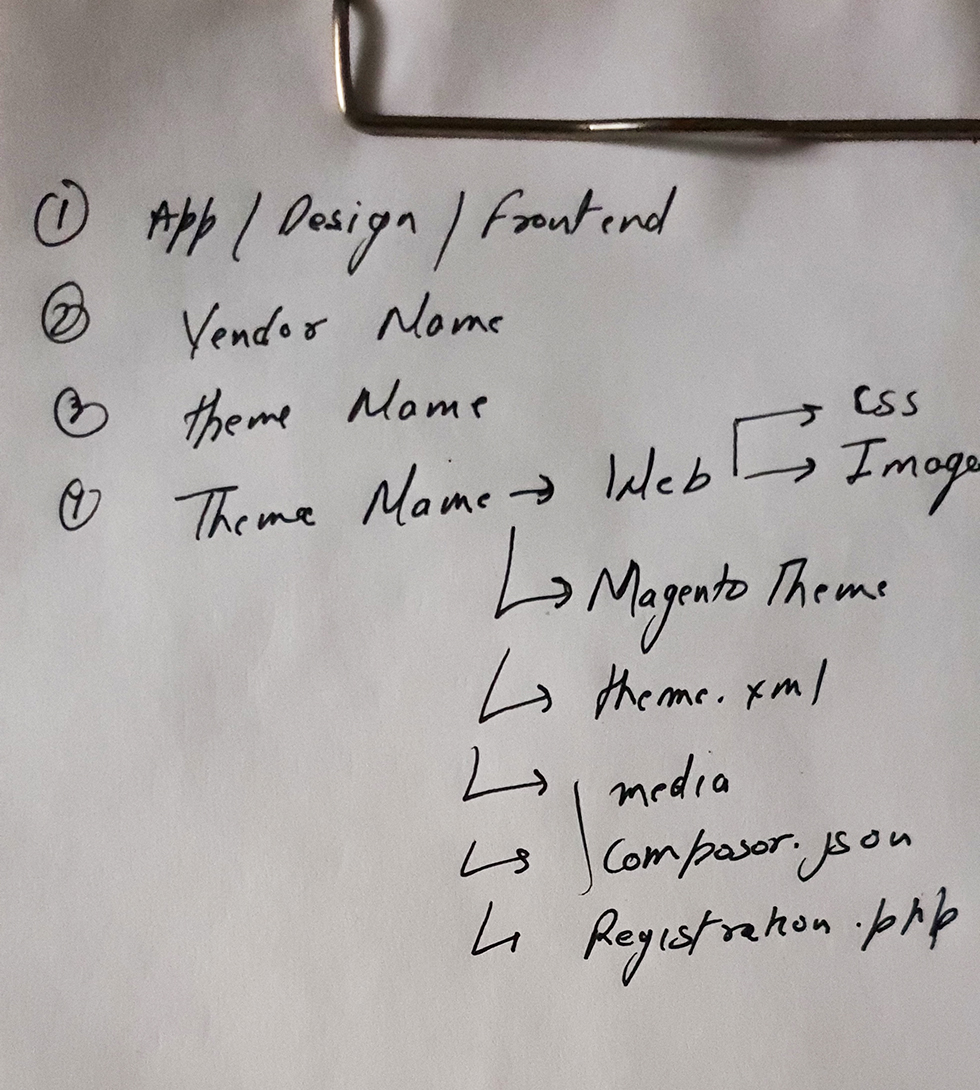 ① App / Design / Frontend
② Vendor Name
③ theme Name
CSS
④ Theme Name → Web → Image
↳ Magento Theme
↳ theme.xml
↳ media
↳ Composor.json
↳ Registration.php